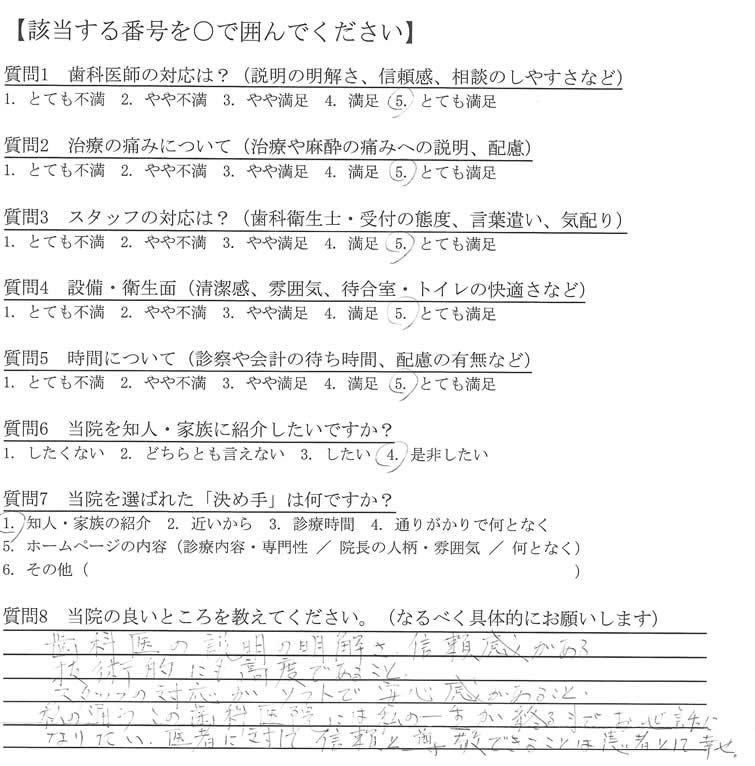 【該当する番号を〇で囲んでください】
質問1　歯科医師の対応は？（説明の明解さ、信頼感、相談のしやすさなど）
1. とても不満　2. やや不満　3. やや満足　4. 満足　5. とても満足
質問2　治療の痛みについて（治療や麻酔の痛みへの説明、配慮）
1. とても不満　2. やや不満　3. やや満足　4. 満足　5. とても満足
質問3　スタッフの対応は？（歯科衛生士・受付の態度、言葉遣い、気配り）
1. とても不満　2. やや不満　3. やや満足　4. 満足　5. とても満足
質問4　設備・衛生面（清潔感、雰囲気、待合室・トイレの快適さなど）
1. とても不満　2. やや不満　3. やや満足　4. 満足　5. とても満足
質問5　時間について（診察や会計の待ち時間、配慮の有無など）
1. とても不満　2. やや不満　3. やや満足　4. 満足　5. とても満足
質問6　当院を知人・家族に紹介したいですか？
1. したくない　2. どちらとも言えない　3. したい　4. 是非したい
質問7　当院を選ばれた「決め手」は何ですか？
1. 知人・家族の紹介　2. 近いから　3. 診療時間　4. 通りがかりで何となく
5. ホームページの内容（診療内容・専門性 ／ 院長の人柄・雰囲気 ／ 何となく）
6. その他（　　　　　）
質問8　当院の良いところを教えてください。（なるべく具体的にお願いします）
歯科医の説明の明解さ、信頼感がある
技術的にも高度であること、
スタッフの対応がソフトで安心感があること、
私の通うこの歯科医院には私の一生が終るまでお世話に
なりたい、医者に対す 信頼と尊敬できることは患者として幸せ。